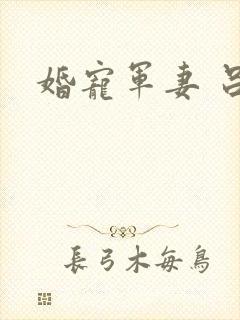 婚寵軍妻
長弓木每鳥